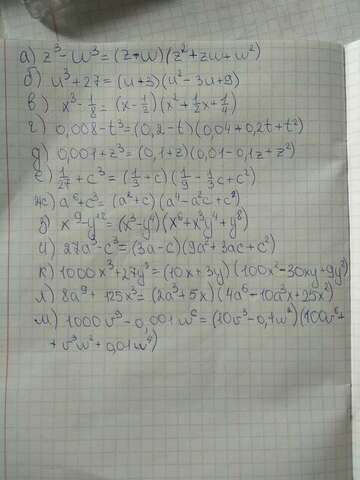 а) z³-w³=(z-w)(z²+zw+w²)
б) u³+27=(u+3)(u²-3u+9)
в) x³-1/8=(x-1/2)(x²+1/2x+1/4)
г) 0,008-t³=(0,2-t)(0,04+0,2t+t²)
д) 0,001+z³=(0,1+z)(0,01-0,1z+z²)
е) 1/27+c³=(1/3+c)(1/9-1/3c+c²)
ж) a⁶+c³=(a²+c)(a⁴-a²c+c²)
з) x⁹-y¹²=(x³-y⁴)(x⁶+x³y⁴+y⁸)
и) 27a³-c³=(3a-c)(9a²+3ac+c²)
к) 1000x³+27y³=(10x+3y)(100x²-30xy+9y²)
л) 8a⁹+125x³=(2a³+5x)(4a⁶-10a³x+25x²)
м) 1000v⁹-0,001w⁶=(10v³-0,1w²)(100v⁶+
+v³w²+0,01w⁴)